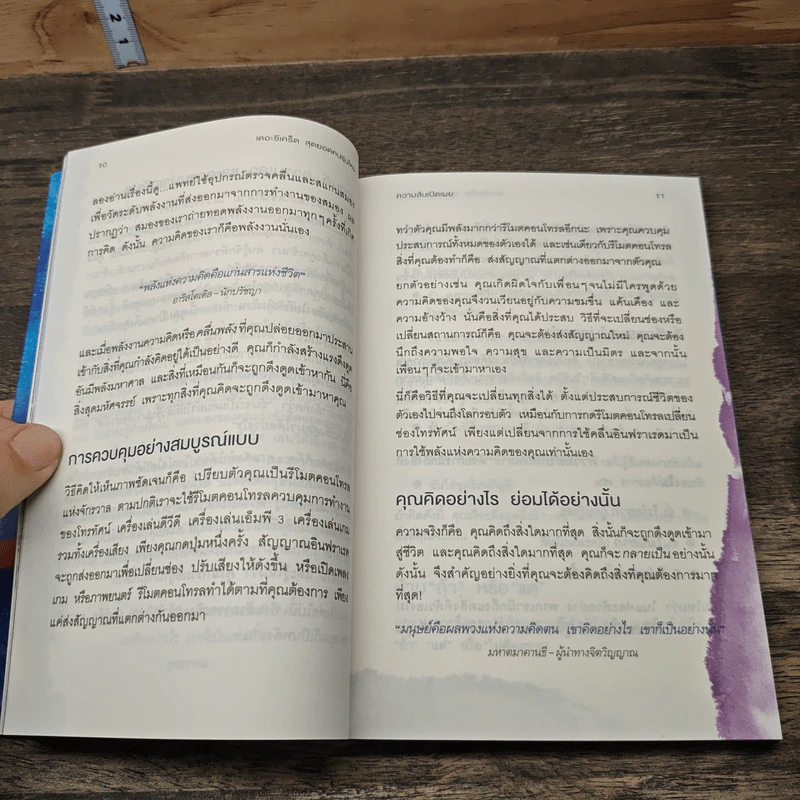 2
1
10
เดอะซีเคร็ต สุดยอดคนรุ่นใหม่
ลองอ่านเรื่องนี้ดู...แพทย์ใช้อุปกรณ์ตรวจคลื่นและสแกนสมอง
เพื่อวัดระดับพลังงานที่ส่งออกมาจากการทำงานของสมอง ผล
ปรากฏว่า สมองของเราถ่ายทอดพลังงานออกมาทุกๆ ครั้งที่เกิด
การคิด ดังนั้น ความคิดของเราก็คือพลังงานนั่นเอง
“พลังแห่งความคิดคือแก่นสารแห่งชีวิต”
อาริสโตเติล – นักปรัชญา
และเมื่อพลังงานความคิดหรือคลื่นพลังที่คุณปล่อยออกมาประสาน
เข้ากับสิ่งที่คุณกำลังคิดอยู่ได้เป็นอย่างดี คุณก็กำลังสร้างแรงดึงดูด
อันมีพลังมหาศาล และสิ่งที่เหมือนกันก็จะถูกดึงดูดเข้าหากัน นี่คือ
สิ่งสุดมหัศจรรย์ เพราะทุกสิ่งที่คุณคิดจะถูกดึงดูดเข้ามาหาคุณ
การควบคุมอย่างสมบูรณ์แบบ
วิธีคิดให้เห็นภาพชัดเจนก็คือ เปรียบตัวคุณเป็นรีโมตคอนโทรล
แห่งจักรวาล ตามปกติเราจะใช้รีโมตคอนโทรลควบคุมการทำงาน
ของโทรทัศน์ เครื่องเล่นดีวีดี เครื่องเล่นเอ็มพี 3 เครื่องเล่นเกม
รวมทั้งเครื่องเสียง เพียงคุณกดปุ่มหนึ่งครั้ง สัญญาณอินฟราเรด
จะถูกส่งออกมาเพื่อเปลี่ยนช่อง ปรับเสียงให้ดังขึ้น หรือเปิดเพลง
เกม หรือภาพยนตร์ รีโมตคอนโทรลทำได้ตามที่คุณต้องการ เพียง
แค่ส่งสัญญาณที่แตกต่างกันออกมา
ความลับเปิดเผย
11
ทว่าตัวคุณมีพลังมากกว่ารีโมตคอนโทรลอีกนะ เพราะคุณควบคุม
ประสบการณ์ทั้งหมดของตัวเองได้ และเช่นเดียวกับรีโมตคอนโทรล
สิ่งที่คุณต้องทำก็คือ ส่งสัญญาณที่แตกต่างออกมาจากตัวคุณ
ยกตัวอย่างเช่น คุณเกิดผิดใจกับเพื่อนๆ จนไม่มีใครพูดด้วย
ความคิดของคุณจึงวนเวียนอยู่กับความขมขื่น แค้นเคือง และ
ความอ้างว้าง นั่นคือสิ่งที่คุณได้ประสบ วิธีที่จะเปลี่ยนช่องหรือ
เปลี่ยนสถานการณ์ก็คือ คุณจะต้องส่งสัญญาณใหม่ คุณจะต้อง
นึกถึงความพอใจ ความสุข และความเป็นมิตร และจากนั้น
เพื่อนๆ ก็จะเข้ามาหาเอง
นี่ก็คือวิธีที่คุณจะเปลี่ยนทุกสิ่งได้ ตั้งแต่ประสบการณ์ชีวิตของ
ตัวเองไปจนถึงโลกรอบตัว เหมือนกับการกดรีโมตคอนโทรลเปลี่ยน
ช่องโทรทัศน์ เพียงแต่เปลี่ยนจากการใช้คลื่นอินฟราเรดมาเป็น
การใช้พลังแห่งความคิดของคุณเท่านั้นเอง
คุณคิดอย่างไร ย่อมได้อย่างนั้น
ความจริงก็คือ คุณคิดถึงสิ่งใดมากที่สุด สิ่งนั้นก็จะถูกดึงดูดเข้ามา
สู่ชีวิต และคุณคิดถึงสิ่งใดมากที่สุด คุณก็จะกลายเป็นอย่างนั้น
ดังนั้น จึงสำคัญอย่างยิ่งที่คุณจะต้องคิดถึงสิ่งที่คุณต้องการมาก
ที่สุด!
“มนุษย์คือผลพวงแห่งความคิดตน เขาคิดอย่างไร เขาก็เป็นอย่างนั้น”
มหาตมาคานธี – ผู้นำทางจิตวิญญาณ